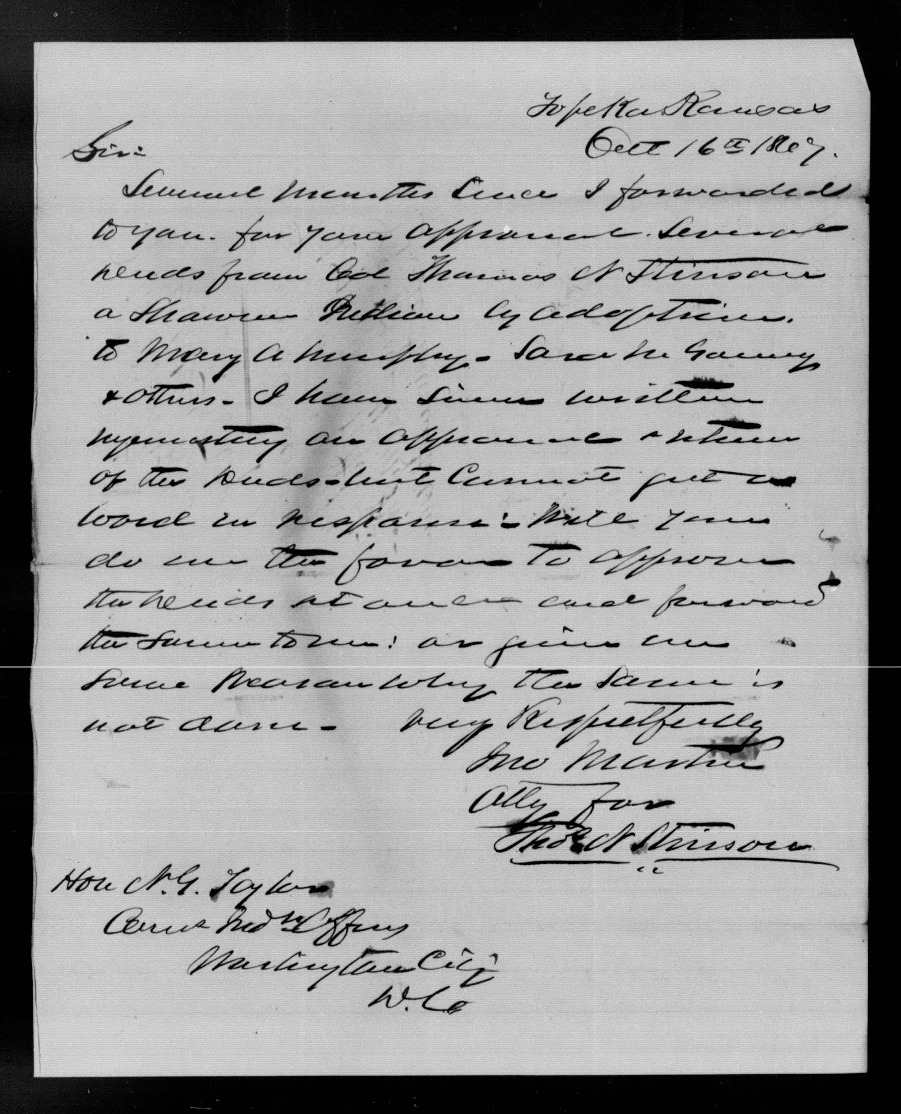 Topeka Kansas
Oct 16th 1867.
Sir:
Several Months Since I forwarded
to you. for your approval. Several
deeds from Col Thomas N Stinson
a Shawnee Indian by adoption.
to Mary A Murphy - Sarah
& others - I have Since written
requesting an approval & return
of the deeds - but Cannot get a
word in response: Will you
do me the favor to approve
the deeds at once and forward
the same to me: or give me
some Reason why the same is
not done - Very Respectfully
Jno Martin
Atty for
Thos N Stinson
Hon N. G. Taylor
Comr Indn Affairs
Washington City
D. C.